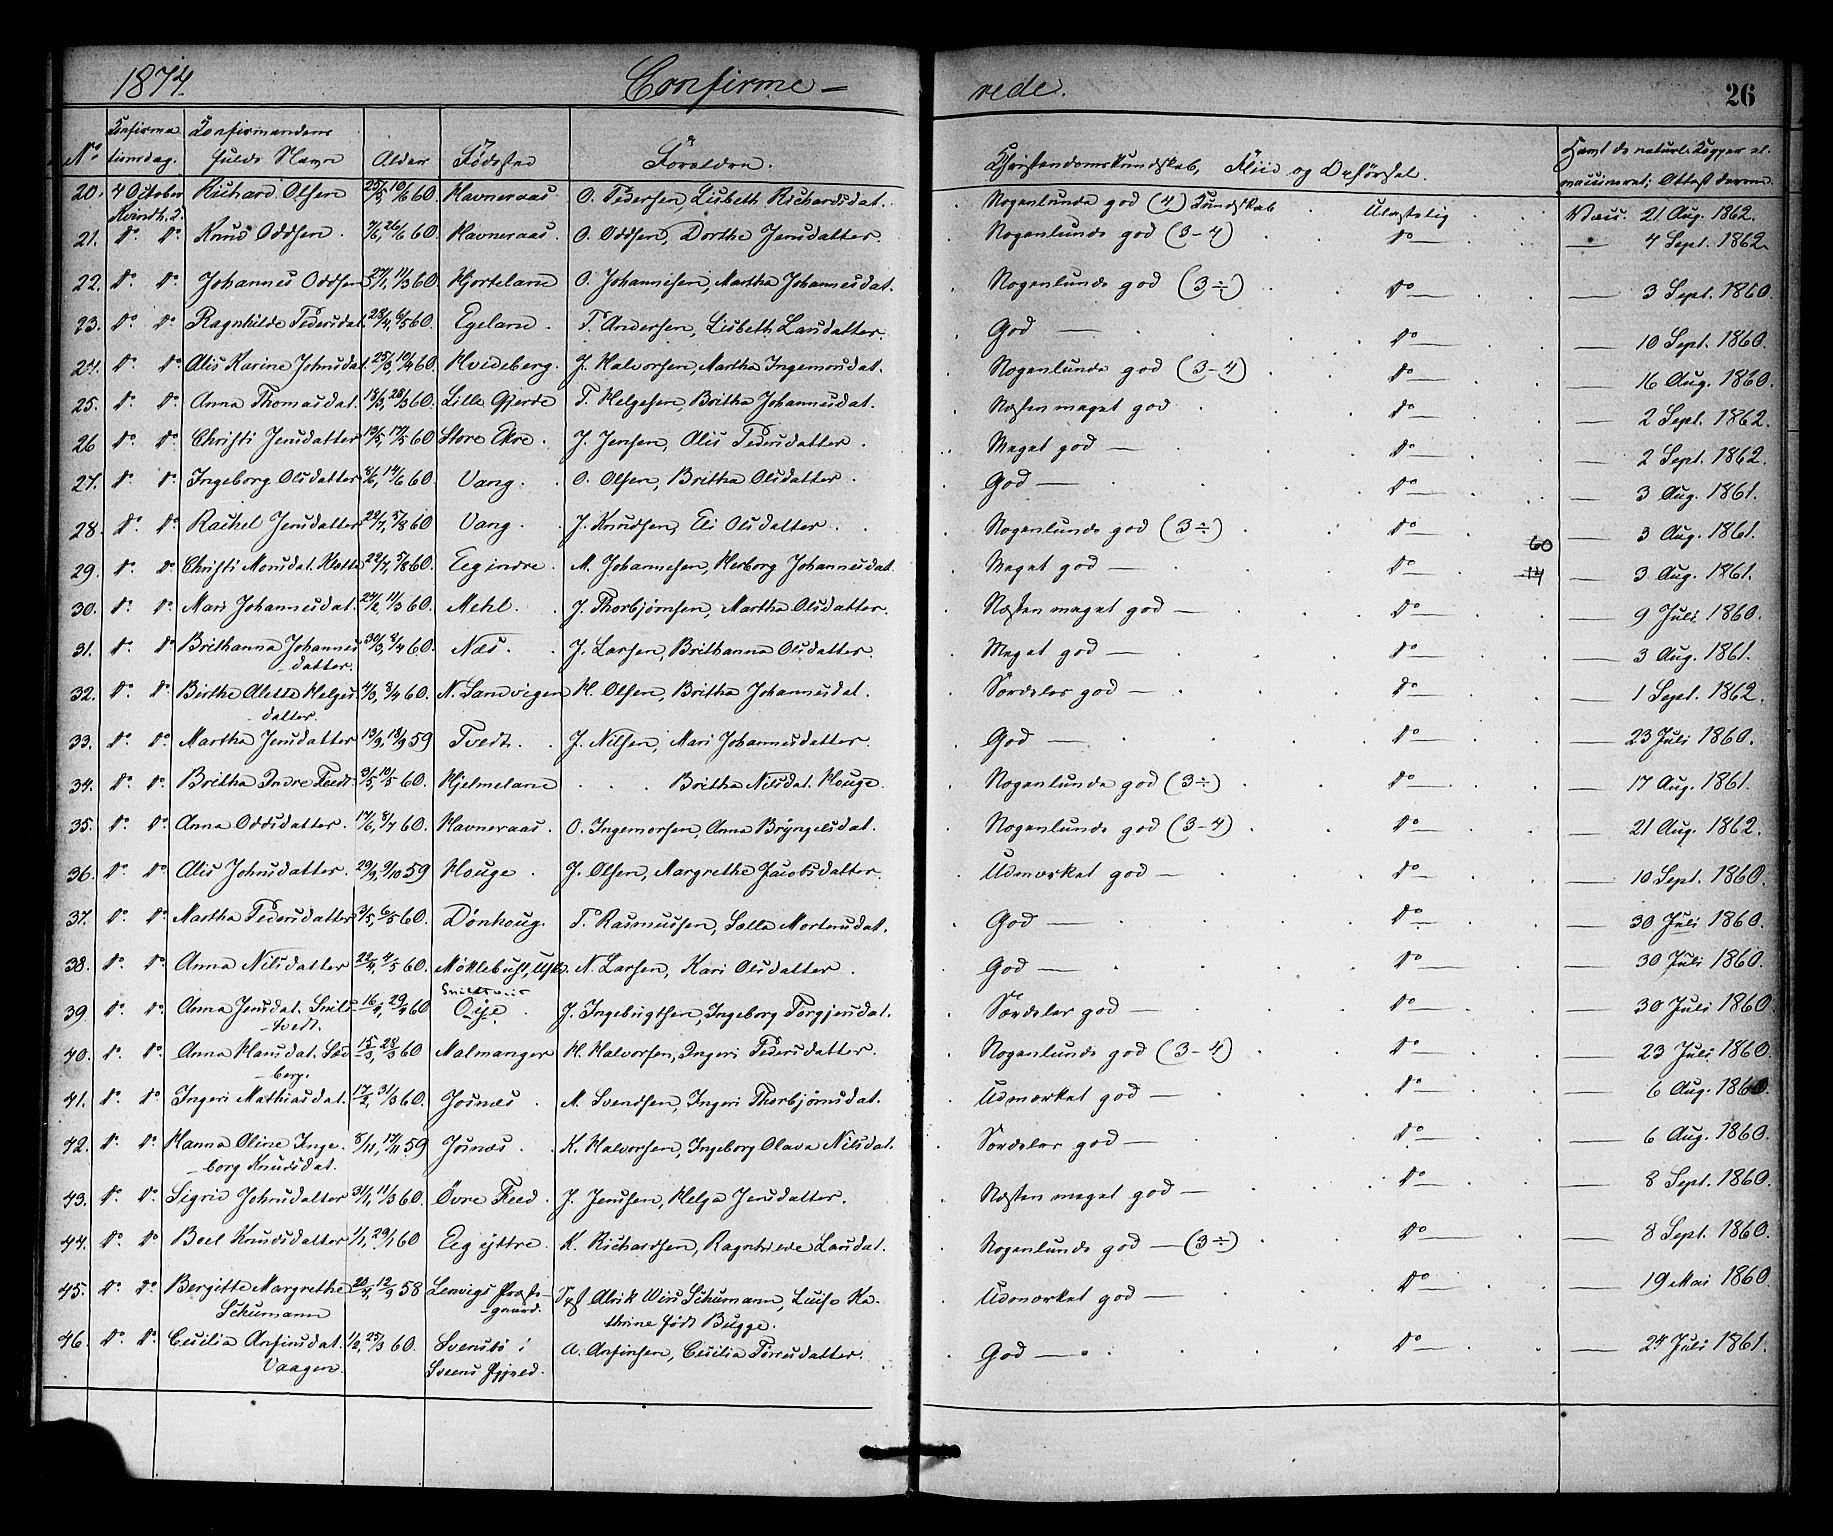 1874. Confirme- rede. 26
No. Konfirma tionsdag. Konfirmandens fulde Navn Alder Födested Foraldre. Kristendomskundskab, Fliid og Opförsel. Havt de naturl. Kopper el. vaccineret; Attest derom.
20. 4 October Richard Olsen 10/6 60. Havneraas. O. Pedersen, Lisbeth Richardsdat. Nogenlunde god (4) Kundskab Ulastelig Vacc. 21 Aug. 1862.
Kvindh. S.
21. do do Knud Oddsen. 7/6, 26/6 60. Havneraas. O. Oddsen, Dorthe Jensdatter. Nogenlunde god (3-4) do — 4 Sept. 1862.
22. do do Johannes Oddsen 27/1, 11/3 60. Hjorteland O. Johannesen, Martha Johannesdat. Nogenlunde god (3÷) do — 3 Sept. 1860.
23. do do Ragnhilde Pedersdat. 28/4, 6/5 60. Egeland. P. Andersen, Lisbeth Larsdatter. God — do — 10 Sept. 1860.
24. do do Alis Karine Johnsdat. 25/3, 10/4 60. Hvideberg. J. Halvorsen, Martha Ingemorsdat. Nogenlunde god (3-4) do — 16 Aug. 1860.
25. do do Anna Thomasdat. 18/3, 28/3 60. Lille Gjerde T. Helgesen, Britha Johannesdat. Næsten meget god do — 2 Sept. 1862.
26 do do Christi Jensdatter 13/5, 17/5 60 Store Ekre. J. Jensen, Alis Pedersdatter. Meget god — do — 2 Sept. 1862.
27. do do Ingeborg Olsdatter 8/6, 14/6 60. Vang. O. Olsen, Britha Olsdatter. God — do — 3 Aug. 1861.
28. do do Rachel Jensdatter 22/7, 5/8 60 Vang. J. Knudsen, Eli Olsdatter. Nogenlunde god (3÷) do — 3 Aug. 1861.
60
29. do do Christi Monsdat. Klette 22/7, 5/8 60. Eeg indre. M. Johannesen, Herborg Johannesdat. Meget god — do 14 — 3 Aug. 1861.
30. do do Mari Johannesdat. 24/2, 11/3 60. Mehl. J. Thorbjörnsen, Martha Olsdatter. Næsten meget god — do — 9 Juli 1860.
31. do do Brithanna Johannes 30/3, 8/4 60. Næs. J. Larsen, Brithanna Olsdatter. Meget god — do — 3 Aug. 1861.
-datter.
32. do do Birthe Alette Helges 4/3, 8/4 60. N. Sandvigen H. Olsen, Britha Johannesdat. Særdeles god — do — 1 Sept. 1862.
-datter.
33. do do Martha Jensdatter 13/9, 18/9 59 Tvedt. J. Nilsen, Mari Johannesdatter. God — do — 23 Juli 1860.
34. do do Britha Indre Feed. 3/5, 10/5 60. Hjelmeland Britha Nilsdat. Houge. Nogenlunde god (3÷) do — 17 Aug. 1861.
35. do do Anna Oddsdatter. 17/6, 8/7 60. Havneraas. O. Ingemorsen, Anna Bryngelsdat. Nogenlunde god (3-4) do — 21 Aug. 1862.
36. do do Alis Johnsdatter. 29/9, 9/10 59 Houge. J. Olsen, Margrethe Jacobsdatter. Udmærket god — do — 10 Sept. 1860.
37. do do Martha Pedersdatter 3/5, 6/5 60. Dönhoug. P. Rasmussen, Salla Mortensdat. God — do — 30 Juli 1860.
38. do do Anna Nilsdatter 22/4, 4/5 60. Möklebust, N. Larsen, Kari Olsdatter. God — do — 30 Juli 1860.
39. do do Anna Jensdat. Snils 16/4, 29/4 60 Öye. J. Ingebrigtsen, Ingeborg Torgjersdat. Særdeles god — do — 30 Juli 1860
-tvedt.
40. do do Anna Hansdat. Sæd 15/3, 28/3 60 Malmanger H. Halvorsen, Ingeri Pedersdatter. Nogenlunde god (3-4) do — 23 Juli 1860.
-berg.
41. do do Ingeri Mathiasdat. 17/2, 31/3 60. Josnæs. M. Svendsen, Ingeri Thorbjörnsdat. Udmærket god — do — 6 Aug. 1860.
42. do do Hanna Oline Inge- 8/11, 17/11 59 Josnæs. K. Halvorsen, Ingeborg Olava Nilsdat. Særdeles god — do — 6 Aug. 1860.
-borg Knudsdat.
43. do do Sigrid Johnsdatter 31/1, 11/3 60. Övre Feed. J. Jensen, Helga Jensdatter. Næsten meget god — do — 8 Sept. 1860.
44. do do Boel Knudsdatter 1/1, 29/1 60 Eeg yttre. K. Richardsen, Ragnhilde Larsdat. Nogenlunde god — (3÷) do — 8 Sept. 1860.
45. do do Bergitte Margrethe 20/4, 12/9 58 Lenvigs Præste- Pst Alrik Wiis Schumann, Luise Ka- Udmærket god — do — 19 Mai 1860.
Schumann -gaard. thrine født Bugge.
46. do do Cecilia Anfinsdat. 1/2, 25/3 60. Svensbö i A. Anfinsen, Cecilia Torresdatter. God — do — 24 Juli 1861.
Vaagen. Sveens Pgjeld.